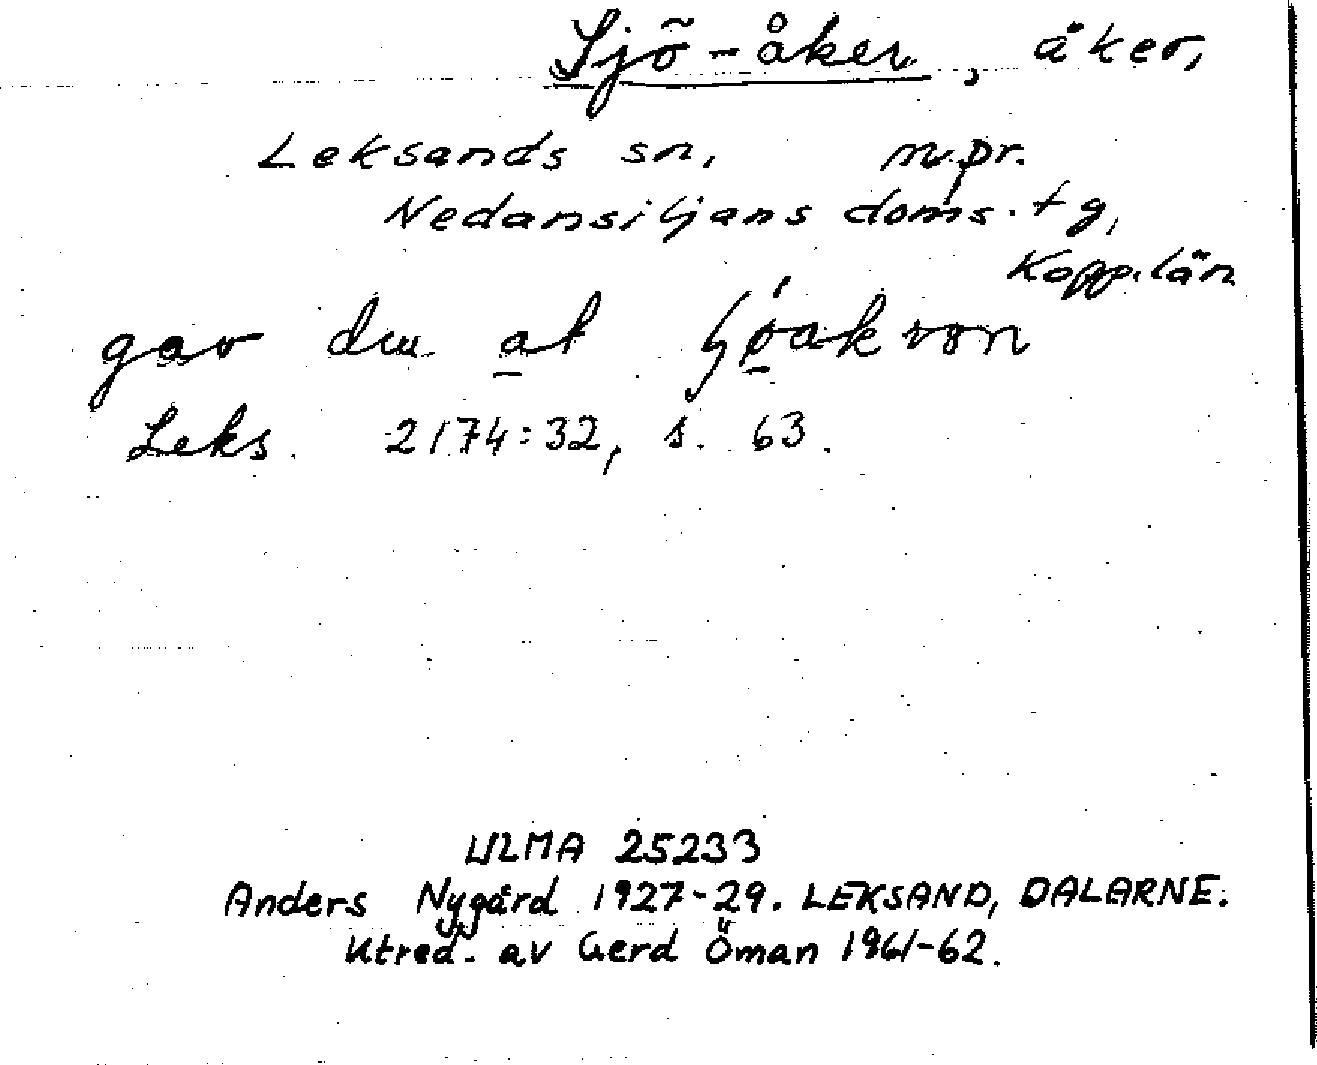 Sjö-åker, åker,
Leksands sn, m.pr.
Nedansiljans doms.tg,
Kopp.län
gav du at
Leks. 2174:32, s. 63.
ULMA 25233
Anders Nygård 1927-29. LEKSAND, DALARNE.
Utred. av Gerd Öman 1961-62.